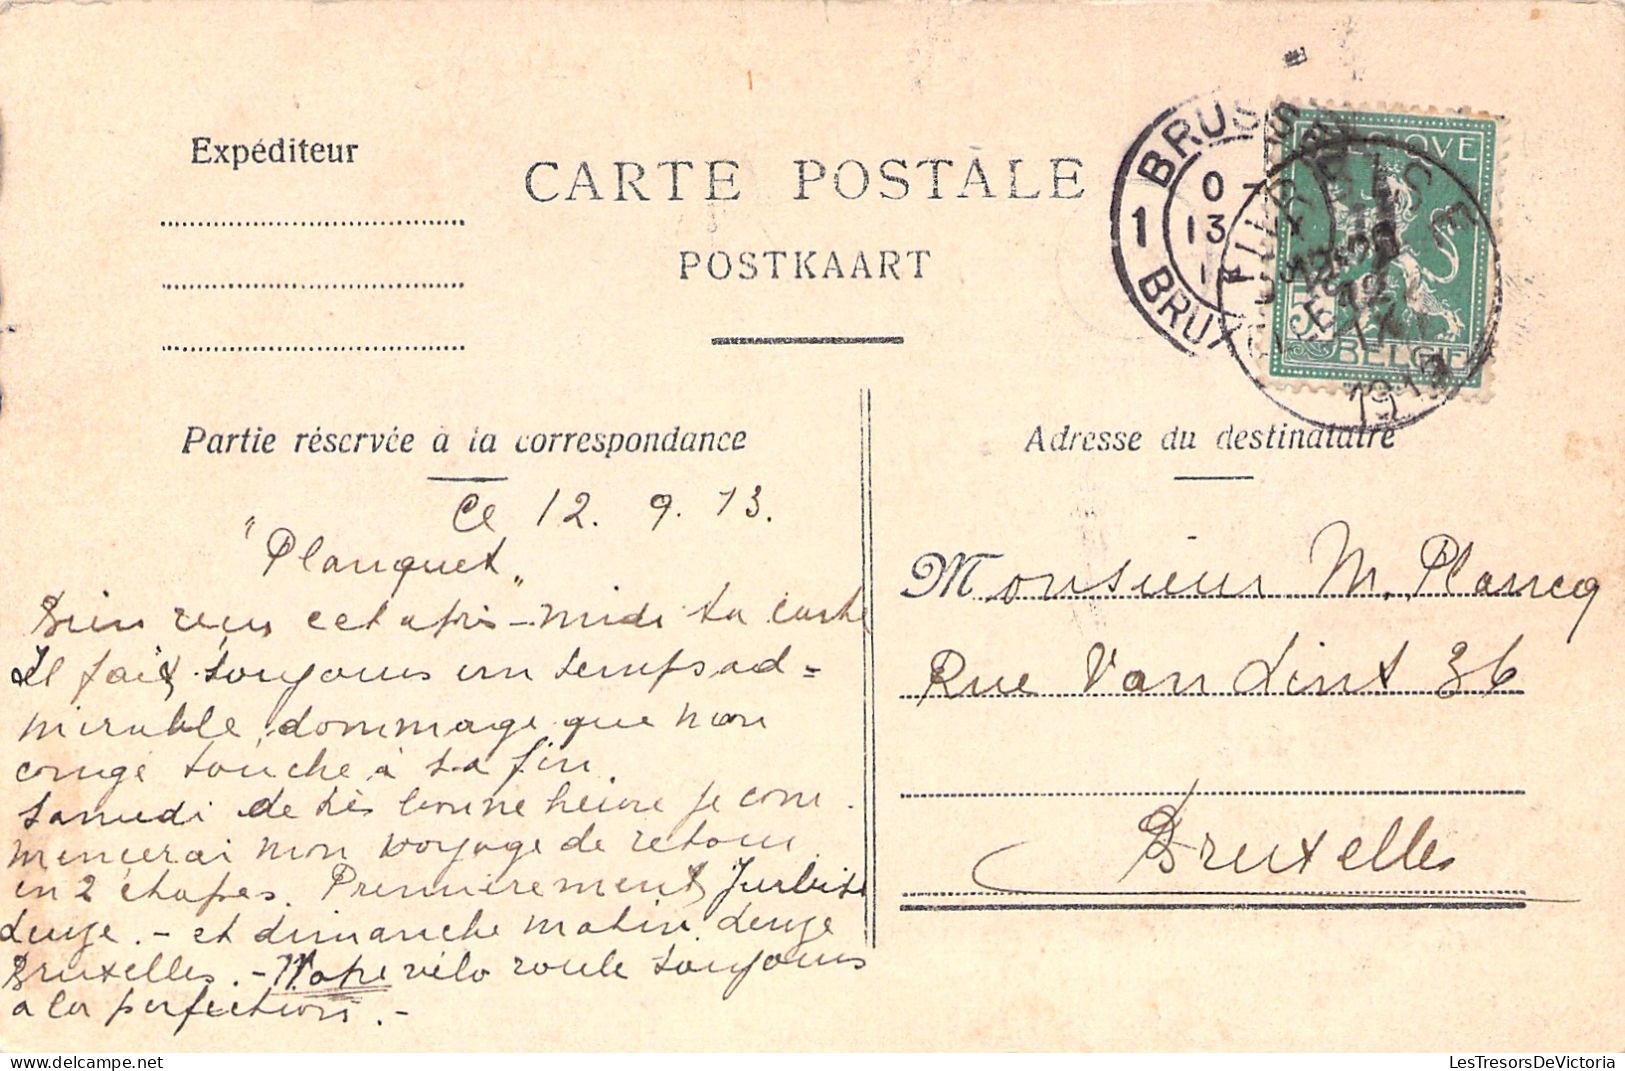 Expéditeur
CARTE POSTALE
POSTKAART
1 BRUSS
0
13
BRUX
5
BELGIE
Partie réservée à la correspondance
Adresse du destinataire
Ce 12. 9. 13.
"Planquet"
Bien reçu cet après-midi ta carte
Il fait toujours un temps ad=
mirable, dommage que mon
congé touche à sa fin.
Samedi de très bonne heure je com.
mencerai mon voyage de retour
en 2 étapes. Premièrement Jurbise
Leuze.- et dimanche matin Leuze
Bruxelles.- vélo roule toujours
à la perfection.-
Monsieur M. Plancq
Rue Van Lint 36
Bruxelles
LesTresorsDeVictoria